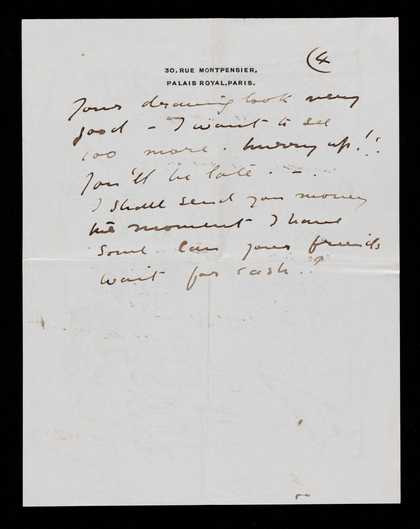 (4
30, RUE MONTPENSIER,
PALAIS ROYAL, PARIS.
Your drawing look very
good – I want to see
100 more. hurry up!!
You'll be late. – .
I shall send you money
the moment I have
some Can your friends
wait for cash?